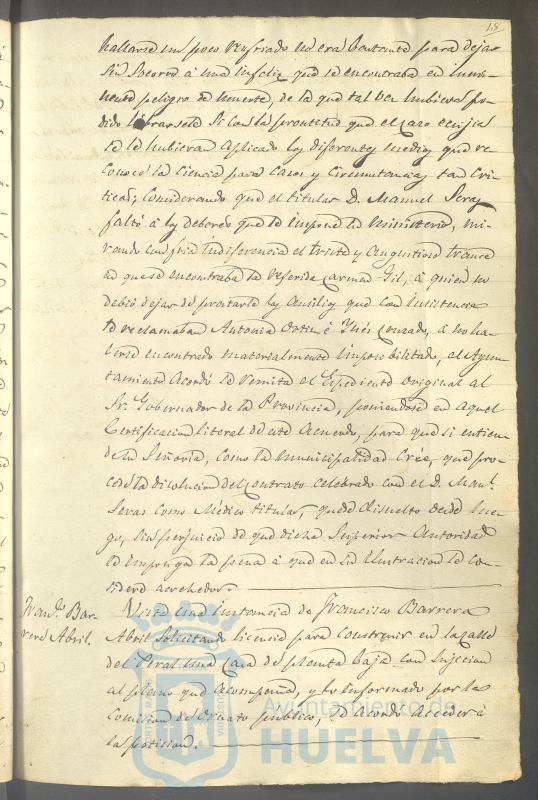 18
hallarse un poco resfriado no era bastante para dejar
sin socorro á una infeliz que se encontraba en inmi-
nente peligro de muerte, de la que tal vez hubiera po-
dido librarsele si con la prontitud que el caso exijia
se le hubieran aplicado los diferentes medios que re-
conoce la ciencia para casos y circunstancias tan cri-
ticas; Considerando que el titular D. Manuel Seras
faltó á los deberes que le impone su ministerio, mi-
rando con fria indiferencia el triste y angustioso trance
en que se encontraba la referida Carmen Gil, á quien no
debió dejar de prestarle los ausilios que con insistencia
le reclamaban Antonia Ortiz é Ynés Conrado, á no ha-
berse encontrado materialmente imposibilitado, el Ayun-
tamiento acordó se remita el Expediente original al
Sr. Gobernador de la Provincia, poniendose en aquel
Certificacion literal de este Acuerdo, para que si entien-
de su Señoria, como la municipalidad cree, que pro-
cede la disolucion del contrato celebrado con el D. Manl.
Seras como Médico titular, quede disuelto desde lue-
go, sin perjuicio de que dicha Superior Autoridad
le imponga la pena á que en su ilustracion le con-
sidere acrehedor.
Franco. Bar-
rera Abril.
Vista una instancia de Francisco Barrera
Abril solicitando licencia para construir en la calle
del Peral una casa de planta baja con sujecion
al plano que acompaña, y lo informado por la
Comision de Ornato público, se acordó acceder á
la peticion.
Ayuntamiento de
HUELVA